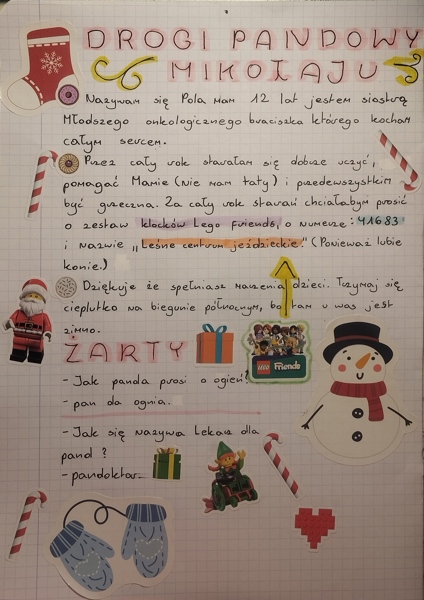 DROGI PANDOWY
MIKOŁAJU
Nazywam się Pola mam 12 lat jestem siostrą
Młodszego onkologicznego braciszka którego kocham
całym sercem.
Przez cały rok starałam się dobrze uczyć,
pomagać Mamie (nie mam taty) i przedewszystkim
być grzeczna. Za cały rok starań chciałabym prosić
o zestaw klocków Lego Friends, o numerze: 41683
i nazwie „Leśne centrum jeździeckie." (Ponieważ lubie
konie.)
Dziękuje że spełniasz marzenia dzieci. Trzymaj się
cieplutko na biegunie północnym, bo tam u was jest
zimno.
ŻARTY
- Jak panda prosi o ogień?
- pan da ognia.
- Jak się nazywa Lekarz dla
pand ?
- pandoktor
LEGO Friends